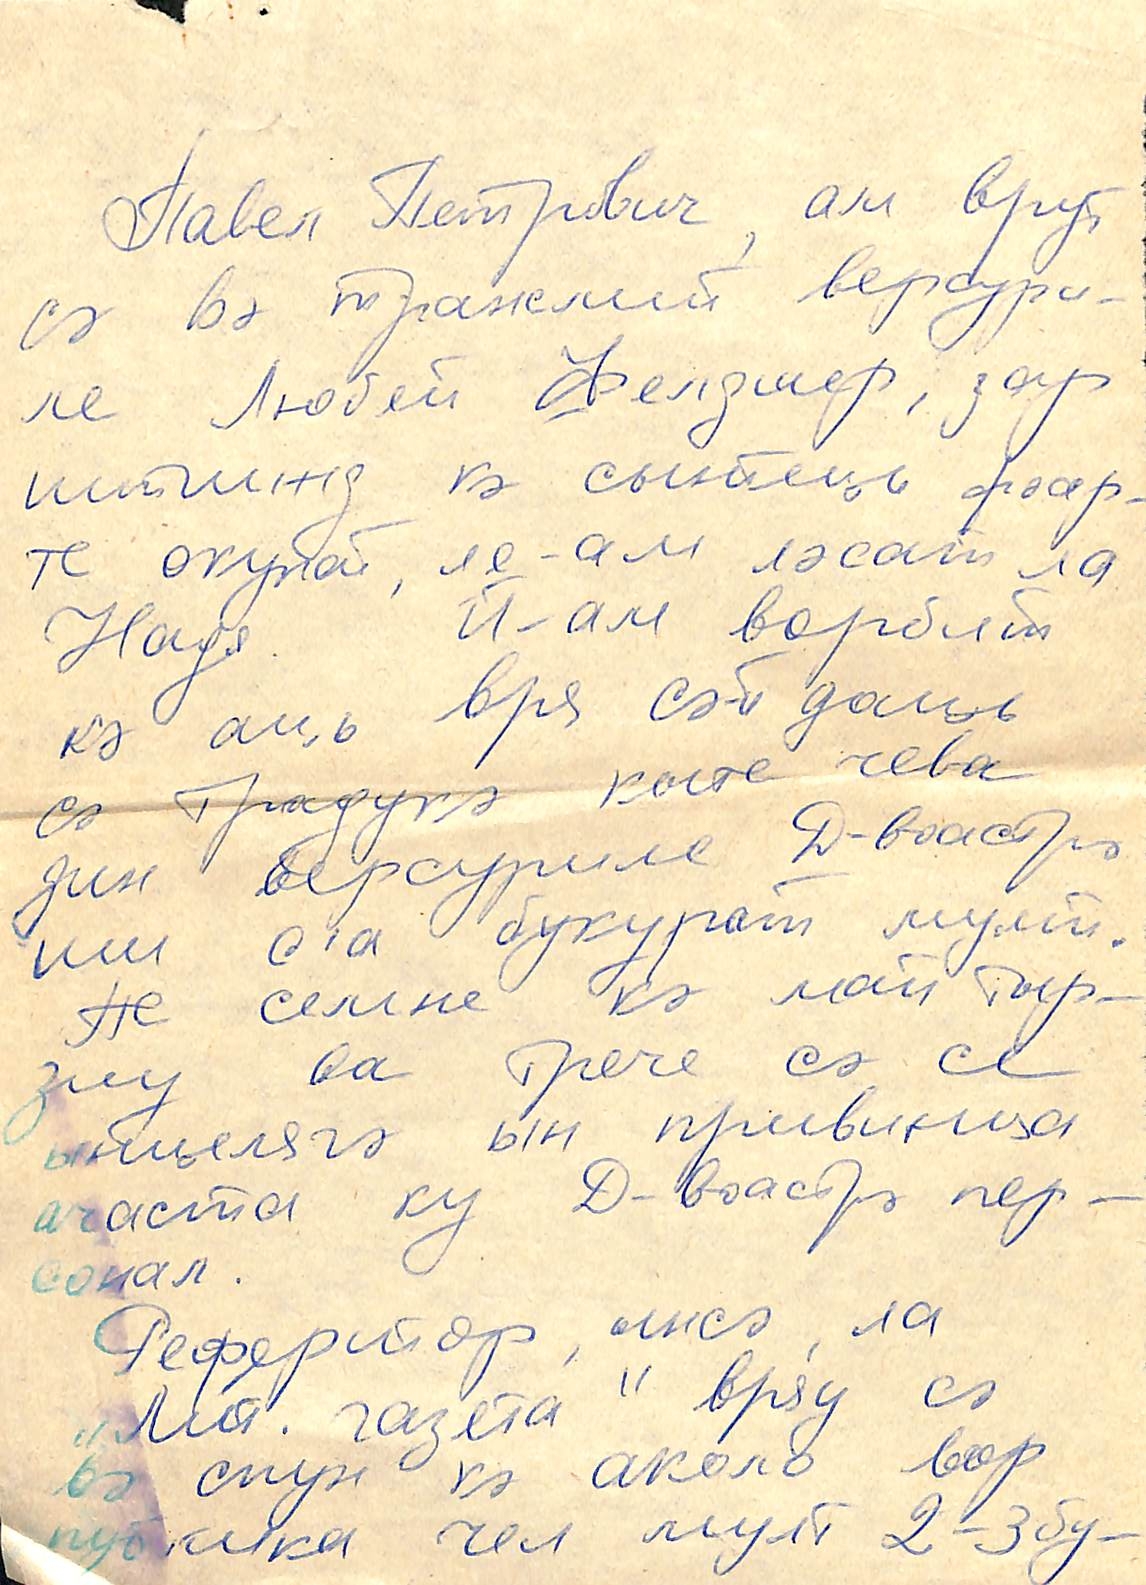 Павел Петрович, ам врут
сэ вэ транжмит версури-
ле Любей Фелдшер, зар
штиинд кэ сынтець фоар-
те окупат, ле-ам лэсат ла
Надя. Й-ам ворбит
кэ аць вря сэ-й даць
сэ традукэ кыте чева
дин версуриле Д-воастрэ
ши с'а букурат мулт.
Те семне кэ май тыр-
зиу ва трече сэ се
ынцелягэ ын привинца
ачаста ку Д-воастрэ пер-
сонал.
Реферитор, ынсэ, ла
"Лит. газета" вряу сэ
вэ спун кэ аколо вор
публика чел мулт 2-3 бу-